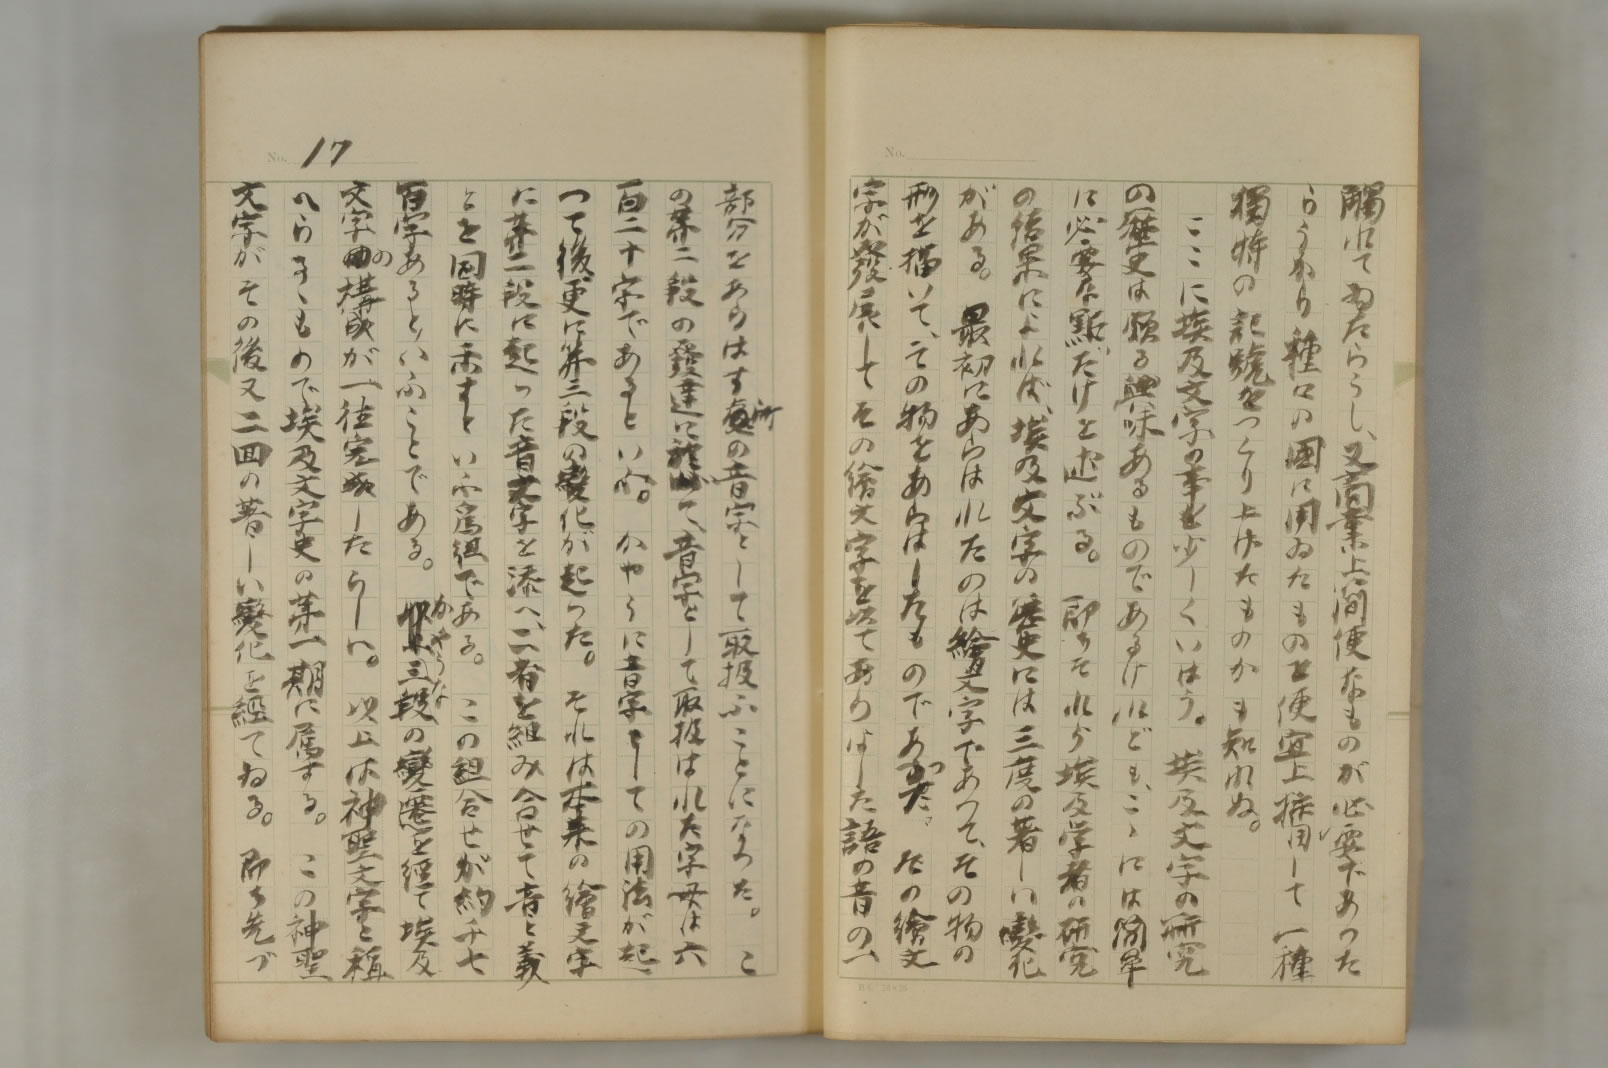 觸れてゐたらうし、又商業上簡便なものが必要であつた
らうから種々の國に用ゐたものを便宜上採用して一種
獨特の記號をつくり上げたものかも知れぬ。
ここに埃及文字の事を少しくいはう。埃及文字の研究
の歴史は頗る興味あるものであるけれども、こゝには簡單
に必要な點だけを述ぶる。即ちそれら埃及学者の研究
の結果によれば、埃及文字の歴史には三度の著しい變化
がある。最初にあらはれたのは繪文字であつて、その物の
形を描いて、その物をあらはしたものであつた。その繪文
字が發展してその繪文字を以てあらはした語の音の一
No.
B6 20×20
No. 17
部分をあらはす所の音字として取扱ふことになつた。こ
の第二段の發達に於て、音字として取扱はれた字母は六
百二十字であるといふ。かやうに音字としての用法が起
つて後、更に第三段の變化が起つた。それは本来の繪文字
に第二段に起つた音文字を添へ、二者を組み合せて音と義
とを同時に示すといふ為組である。この組合せが約千七
百字あるといふことである。かやうな三段の變遷を經て埃及
文字の構成が一往完成したらしい。以上は神聖文字と稱
へらるゝもので埃及文字史の第一期に屬する。この神聖
文字がその後又二回の著しい變化を經てゐる。即ち先づ